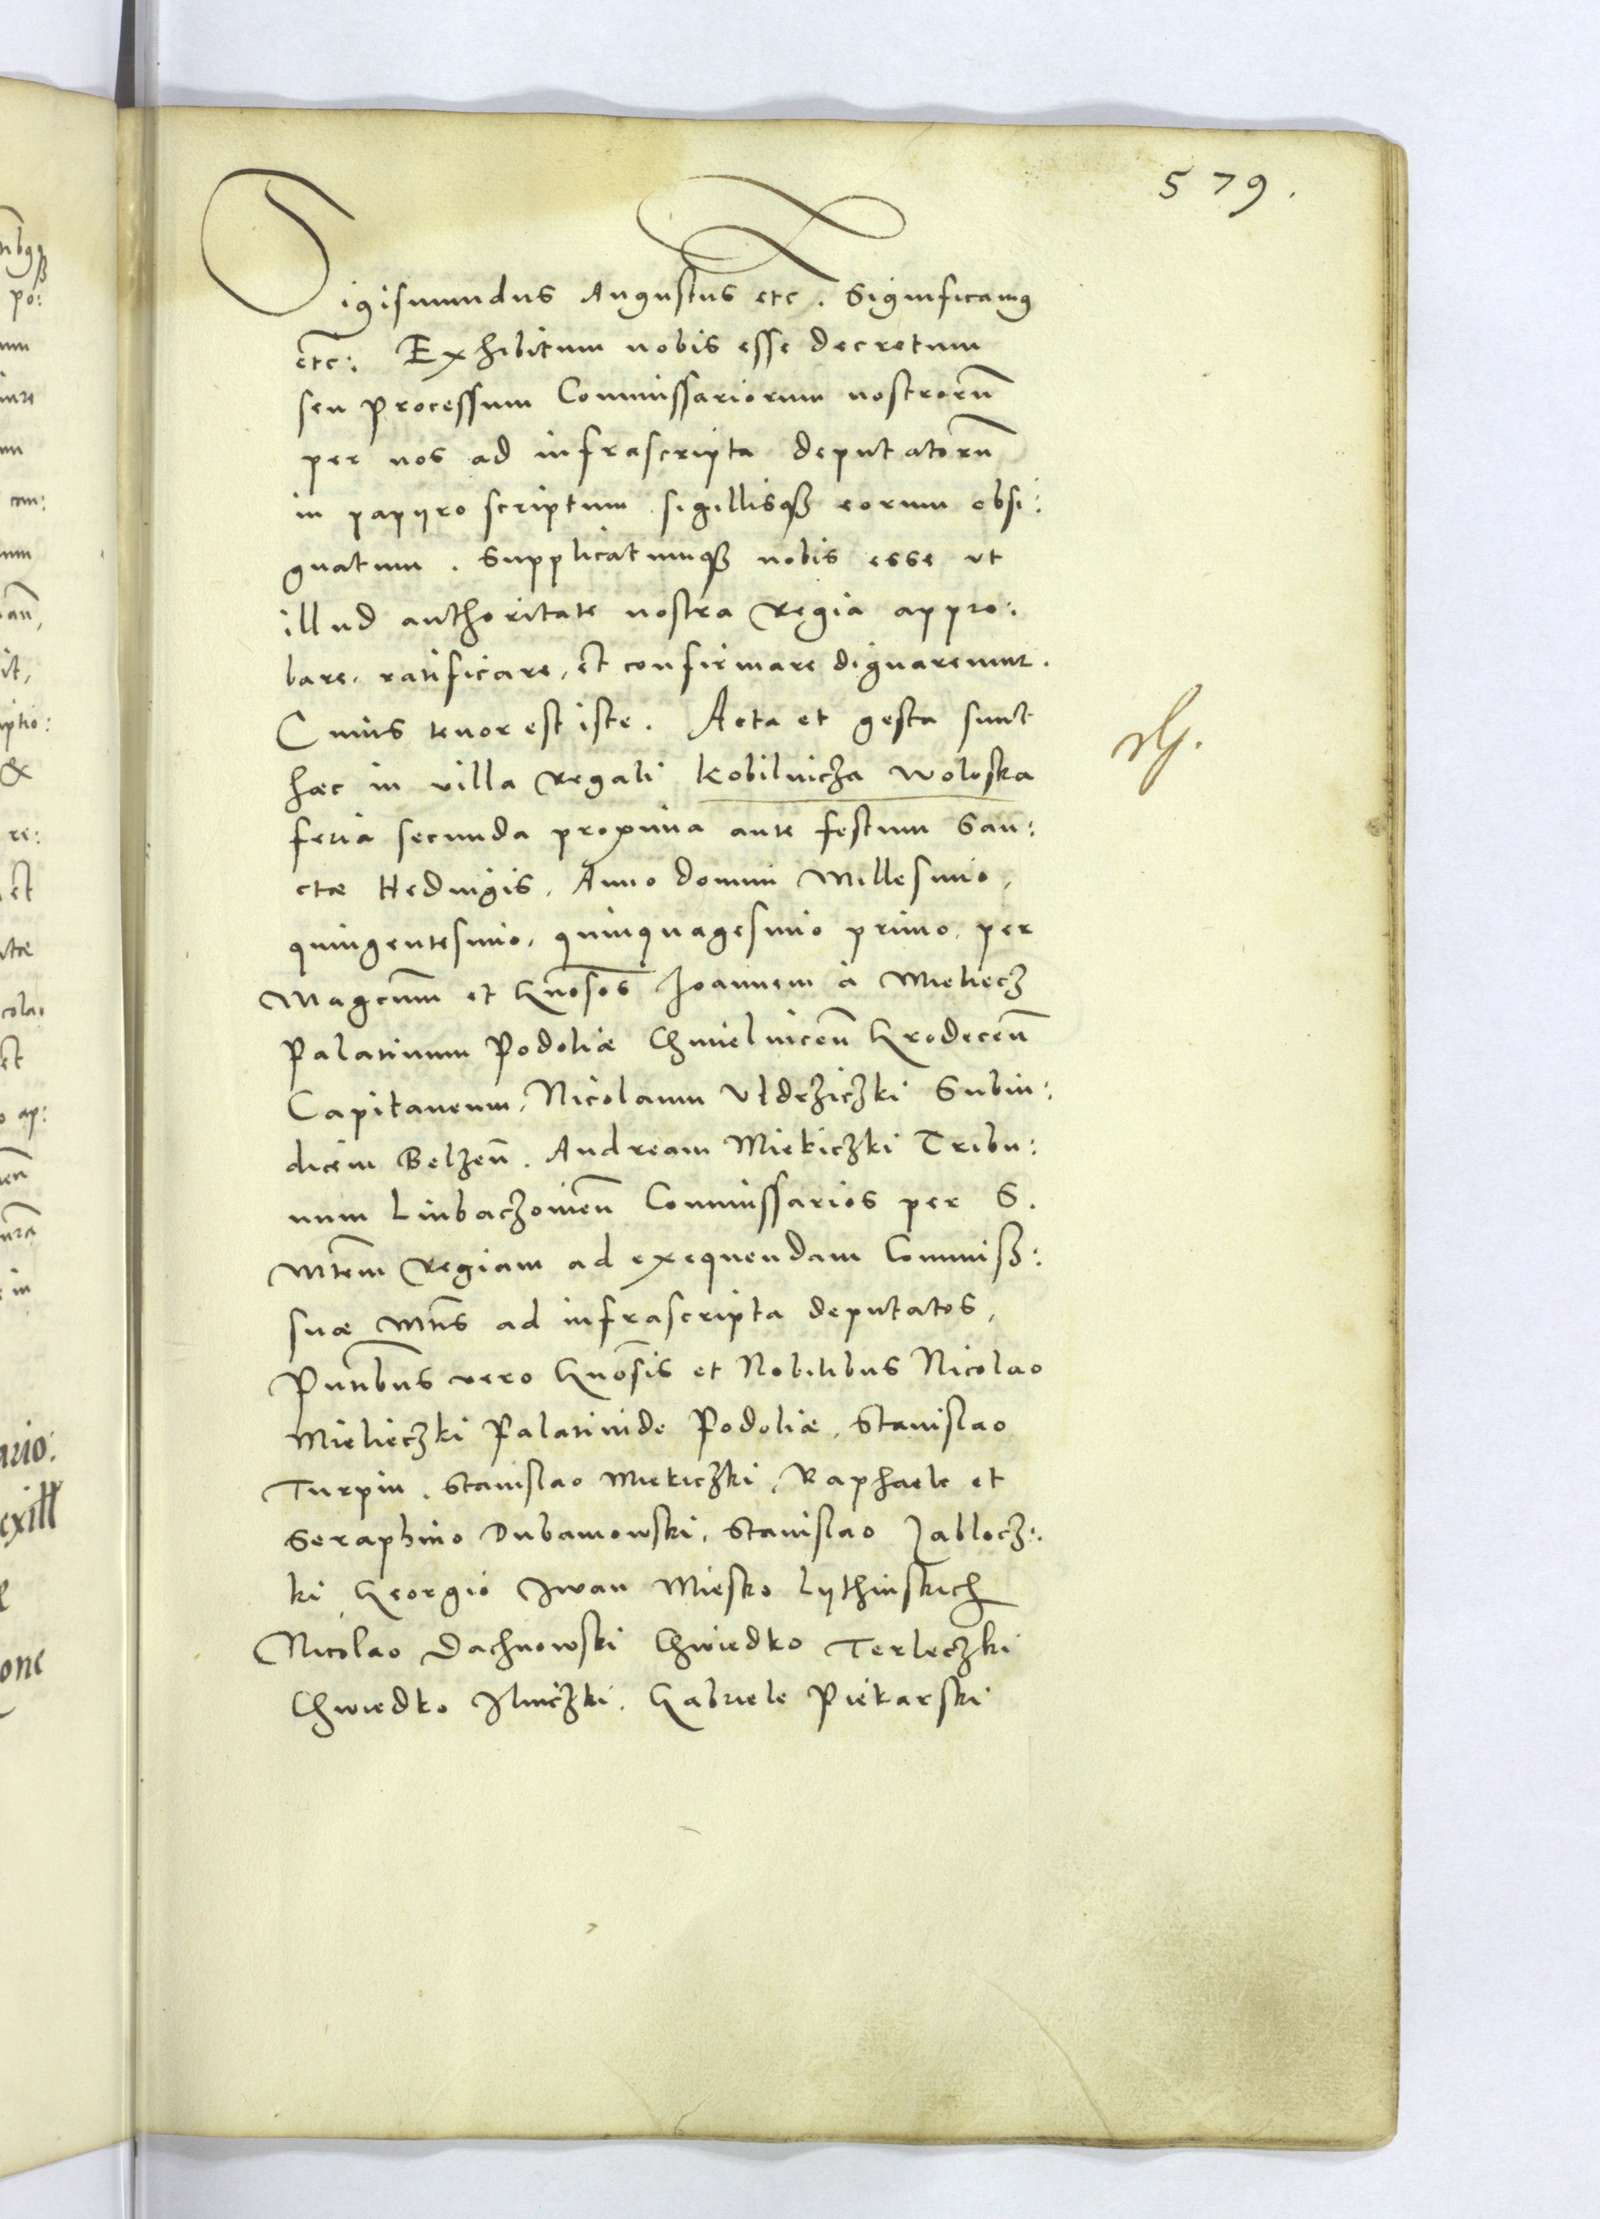 579.
Sigismundus Augustus etc. Significamus
etc: Exhibitum nobis esse decretum
seu processum Commissariorum nostrorũ
per nos ad infrascripta deputatorũ
in papÿro scriptum sigillisqȝ eorum obsi:
gnatum. Supplicatumqȝ nobis esse vt
illud authoritate nostra Regia appro:
bare, ratificare, et confirmare dignaremur.
Cuius tenor est iste. Acta et gesta sunt
hæc in villa Regali Kobilnicza Woloska
feria secunda proxima ante festum San:
ctæ Hedvigis, Anno domini Millesimo,
quingentesimo, quinquagesimo primo, per
Magcum̃ et Gnõsos Joannem à Mieliecz
Palatinum Podoliæ Chmielniceñ Grodeceñ
Capitaneum, Nicolaum Vhdrziczki Subiu:
dicem Belzeñ. Andream Miekiczki Tribu:
num Liubaczovieñ Commissarios per S.
Mtem̃ Regiam ad exequendam Commiss:
suæ Mtis ad infrascripta deputatos,
Pñtibus vero Gnõsis et Nobilibus Nicolao
Mielieczki Palatinide Podoliæ, Stanislao
Turpin, Stanislao Miekiczki, Raphaele et
Seraphino Dubanowski, Stanislao Jablocz:
ki Georgio Iwan Miesko Lÿthinskich
Nicolao Dachnowski Chwiedko Terleczki
Chwiedko Ilniczki, Gabriele Piekarski